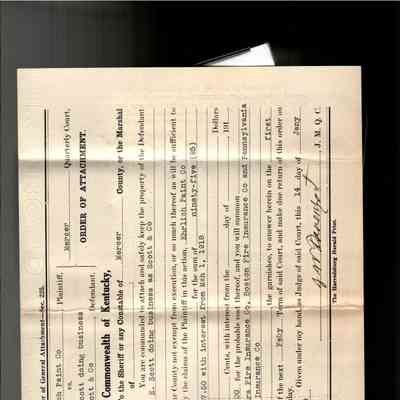 er of General Attachment—Sec. 225.
h Paint Co Plaintiff,
vs.
ott doing business
tt & Co , Defendant.
Mercer Quarterly Court,
ORDER OF ATTACHMENT.
Commonwealth of Kentucky,
To the Sheriff or any Constable of Mercer County, or the Marshal
of
You are commanded to attach and safely keep the property of the Defendant
E. Scott doing business as Scott & Co
r County not exempt from execution, or so much thereof as will be sufficient to
y the claim of the Plaintiff in this action, Ehrlich Paint Co
for the sum of ninety-five (95) Dollars
.50 with interest from Mch 1, 1918
Cents, with interest from the day of , 191
00 for the probable cost thereof, and you will summon
rs Fire Insurance Co, Boston Fire Insurance Co and Pennsylvania
Insurance Co the garnishee, to answer herein on the first
of the next Feby Term of said Court, and make due return of this order on
day.
Given under my hand, as Judge of said Court, this 14 day of Jany
J. M. Q. C.
The Harrodsburg Herald Print